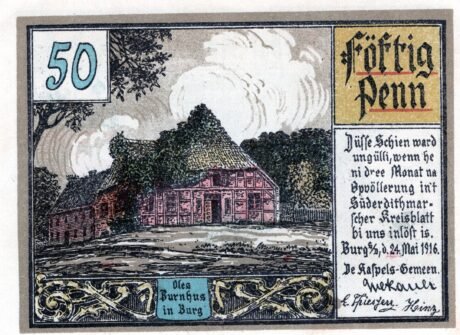 50
Föftig
Penn
Düsse Schien ward
ungülli, wenn he
ni dree Monat na
Opvöllerung in't
Süderdithmar-
scher Kreisblatt
bi uns inlöst is.
Burg i/D, d. 24. Mai 1916.
De Kaspels-Gemeen.
Oles
Burnhus
in Burg